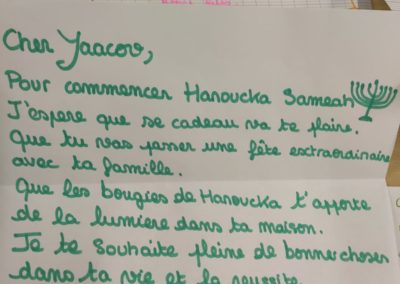 Cher Yaacov,
Pour commencer Hanoucka Sameah
J'espere que se cadeau va te plaire.
Que tu vas passer une fête esctraordinaire
avec ta famille.
Que les bougies de Hanoucka t'apporte
de la lumiere dans ta maison.
Je te souhaite pleine de bonne choses
dans ta vie et la reussite